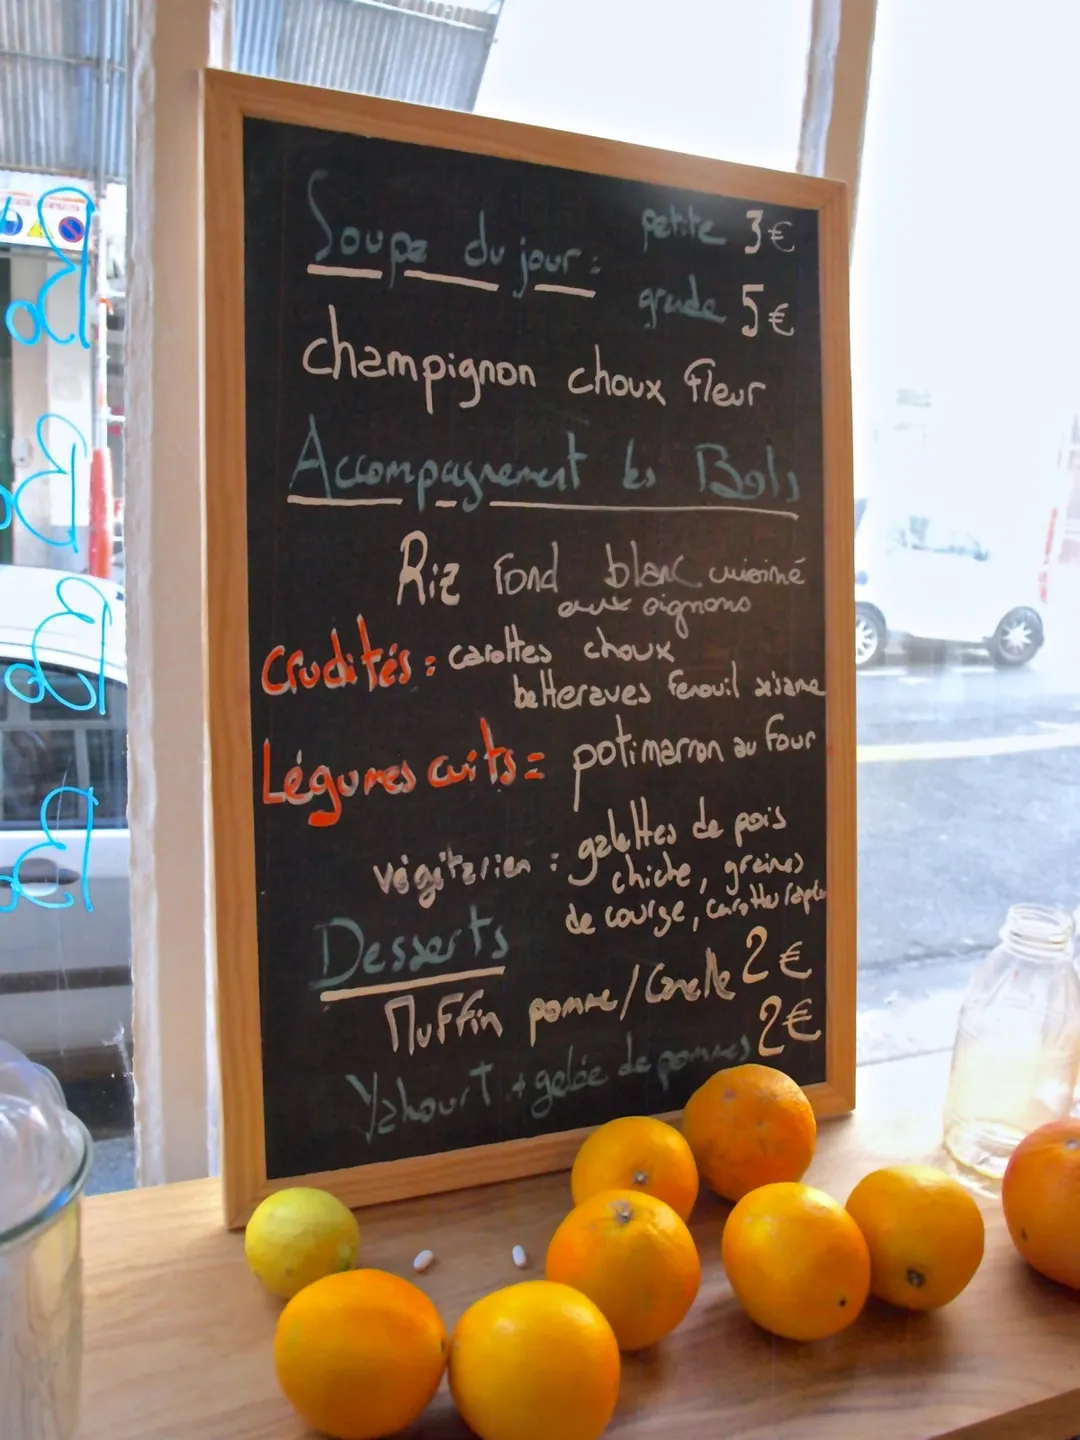 Soupe du jour : petite 3€
grande 5€
champignon choux fleur
Accompagnement les Bols
Riz fond blanc cuisiné
aux oignons
Crudités : carottes choux
betteraves fenouil sésame
Légumes cuits = potimarron au four
végitarien : galettes de pois
chiche, graines
de courge, carottes rapées
Desserts
Muffin pomme/Canelle 2€
Yahourt + gelée de pommes 2€